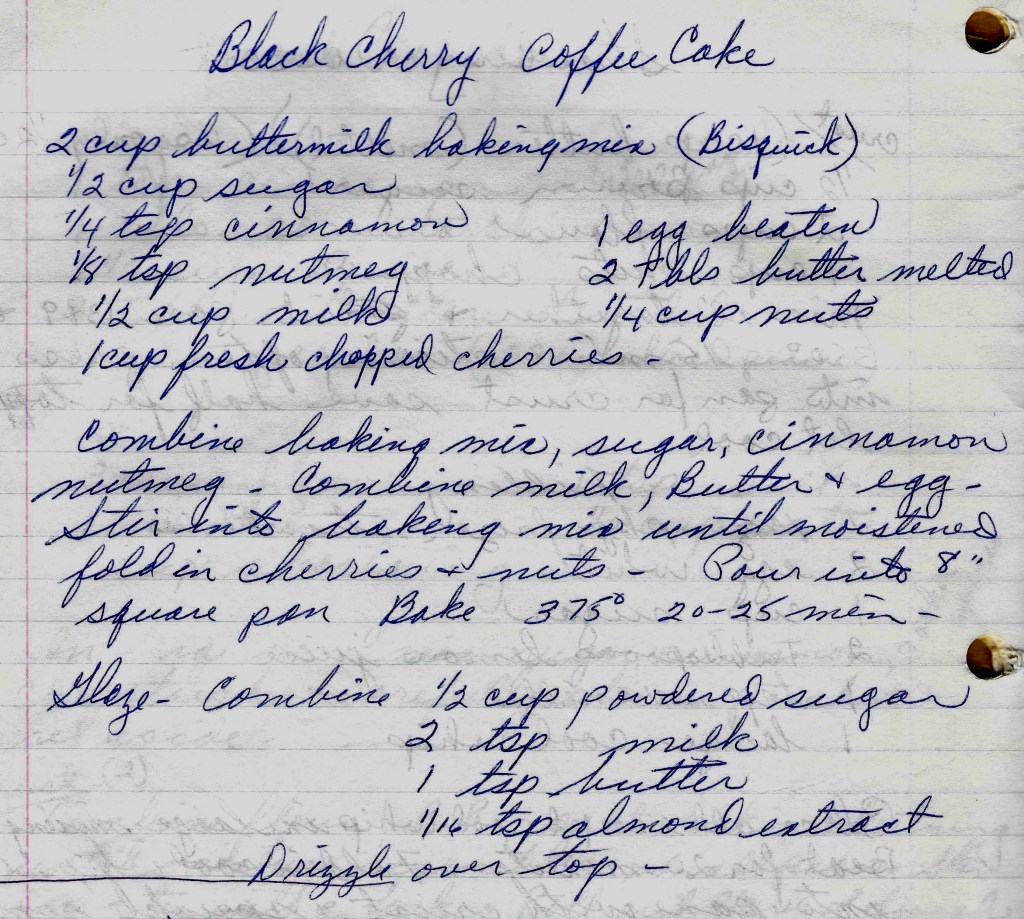 Black Cherry Coffee Cake
2 cup buttermilk baking mix (Bisquick)
1/2 cup sugar
1/4 tsp cinnamon 1 egg beaten
1/8 tsp nutmeg 2 Tbls butter melted
1/2 cup milk 1/4 cup nuts
1 cup fresh chopped cherries -
Combine baking mix, sugar, cinnamon
nutmeg - Combine milk, Butter + egg -
Stir into baking mix until moistened
fold in cherries + nuts - Pour into 8"
square pan Bake 375° 20-25 min -
Glaze - Combine 1/2 cup powdered sugar
2 tsp milk
1 tsp butter
1/16 tsp almond extract
Drizzle over top -